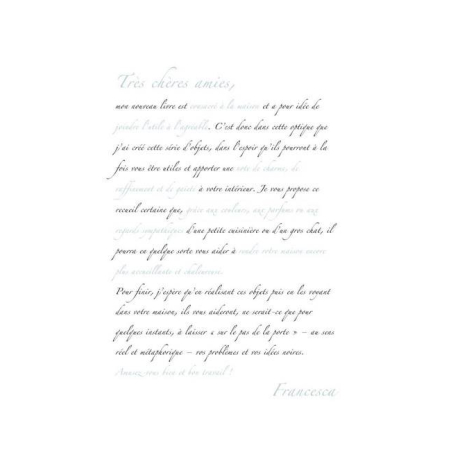 Très chères amies,
mon nouveau livre est consacré à la maison et a pour idée de
joindre l'utile à l'agréable. C'est donc dans cette optique que
j'ai créé cette série d'objets, dans l'espoir qu'ils pourront à la
fois vous être utiles et apporter une note de charme, de
raffinement et de gaieté à votre intérieur. Je vous propose ce
recueil certaine que, grâce aux couleurs, aux parfums ou aux
regards sympathiques d'une petite cuisinière ou d'un gros chat, il
pourra en quelque sorte vous aider à rendre votre maison encore
plus accueillante et chaleureuse.
Pour finir, j'espère qu'en réalisant ces objets puis en les voyant
dans votre maison, ils vous aideront, ne serait-ce que pour
quelques instants, à laisser « sur le pas de la porte » – au sens
réel et métaphorique – vos problèmes et vos idées noires.
Amusez-vous bien et bon travail !
Francesca